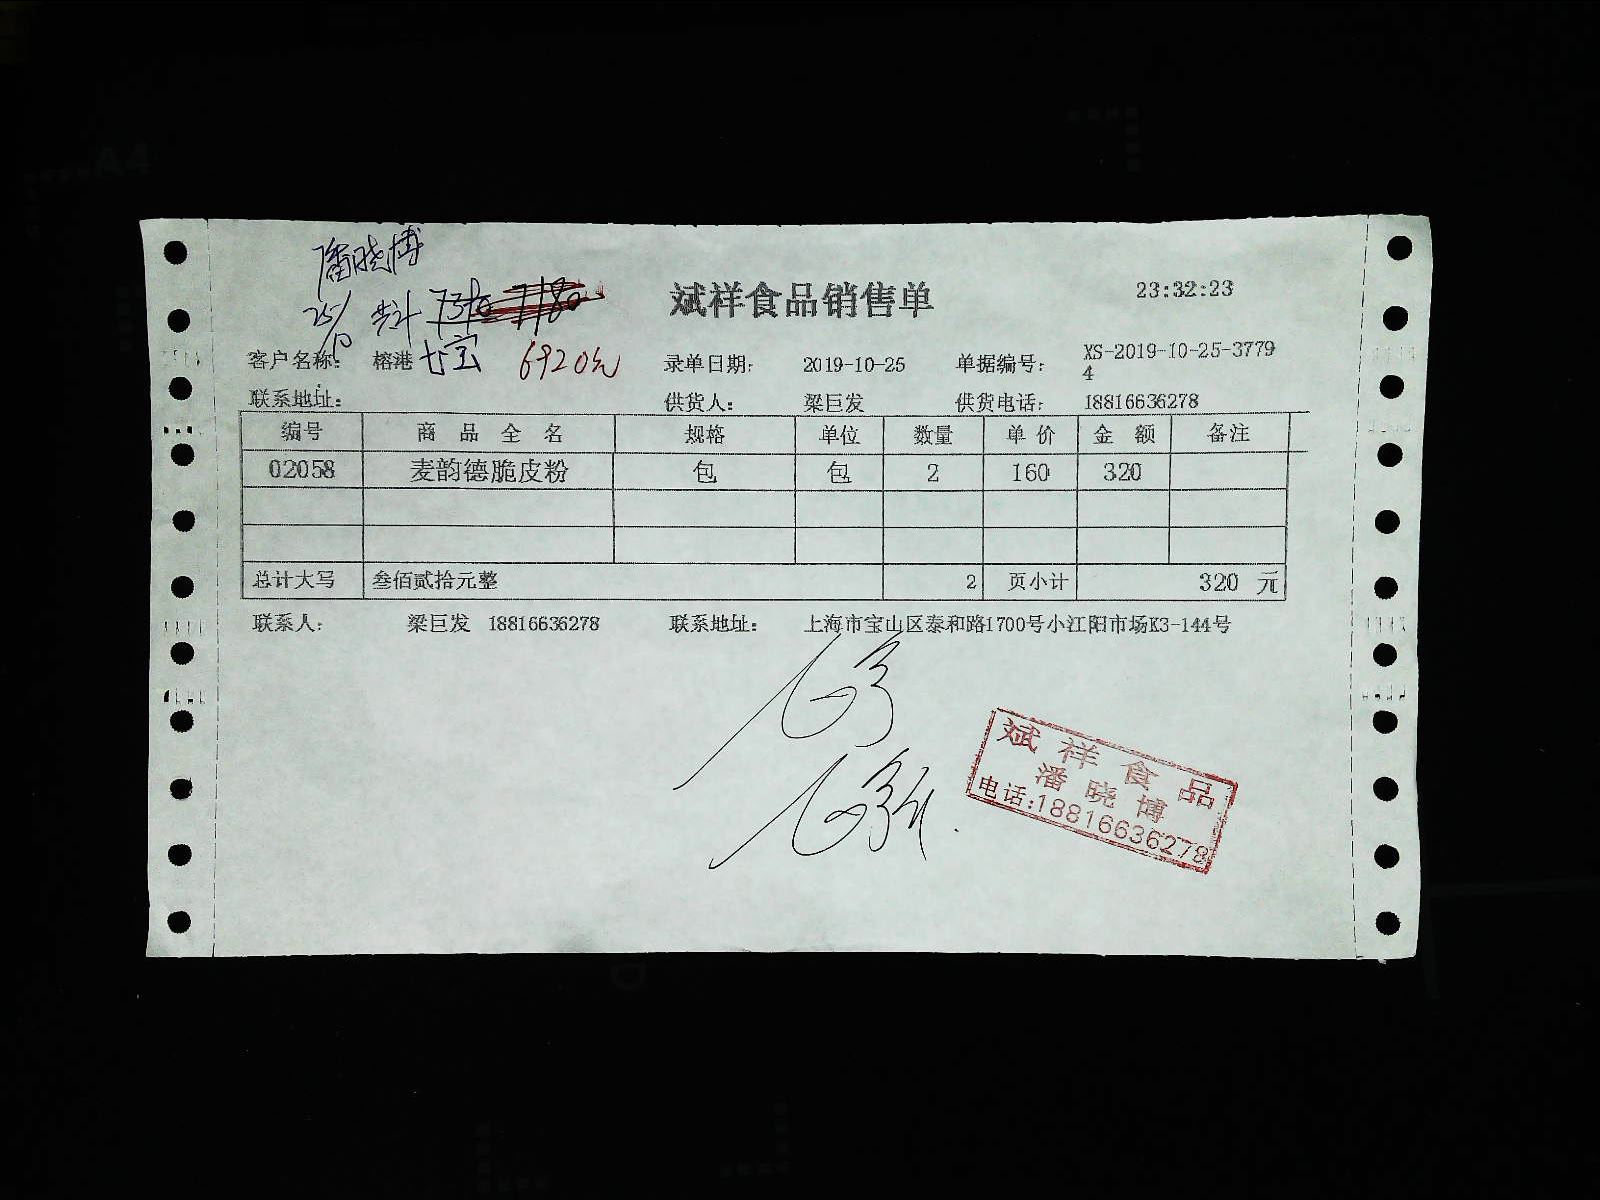 潘晓博
25/10 共计
斌祥食品销售单 23:32:23
客户名称： 榕港 七宝 6920元 录单日期： 2019-10-25 单据编号： XS-2019-10-25-37794
联系地址： 供货人： 梁巨发 供货电话： 18816636278
编号 商品全名 规格 单位 数量 单价 金额 备注
02058 麦韵德脆皮粉 包 包 2 160 320
总计大写 叁佰贰拾元整 2 页小计 320 元
联系人： 梁巨发 18816636278 联系地址： 上海市宝山区泰和路1700号小江阳市场K3-144号
斌祥食品
潘晓博
电话:18816636278